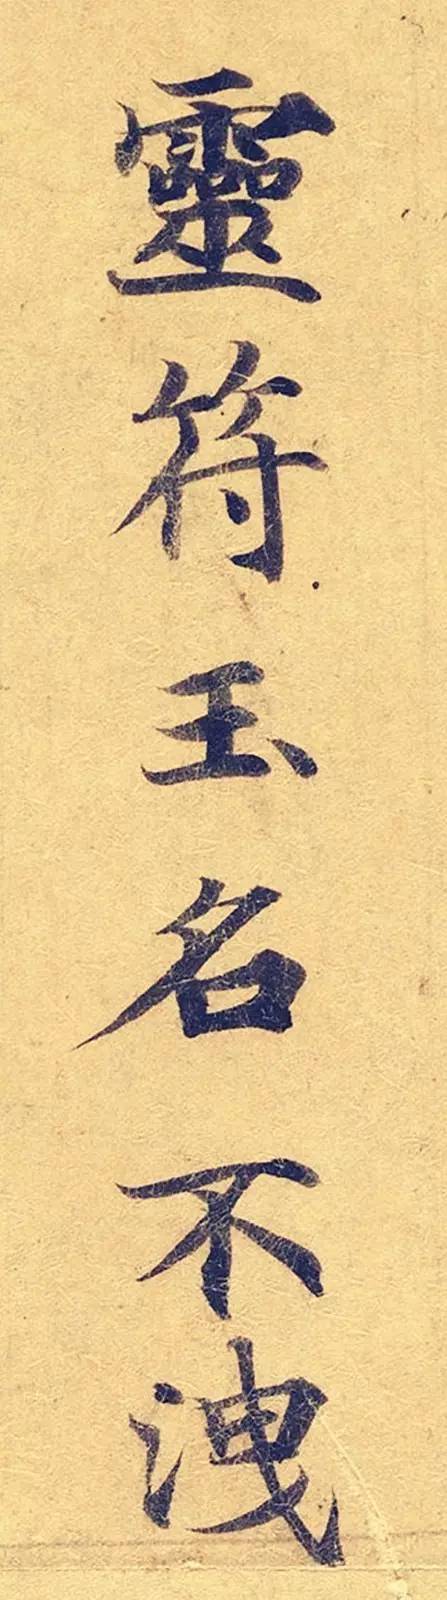 靈符玉名不洩